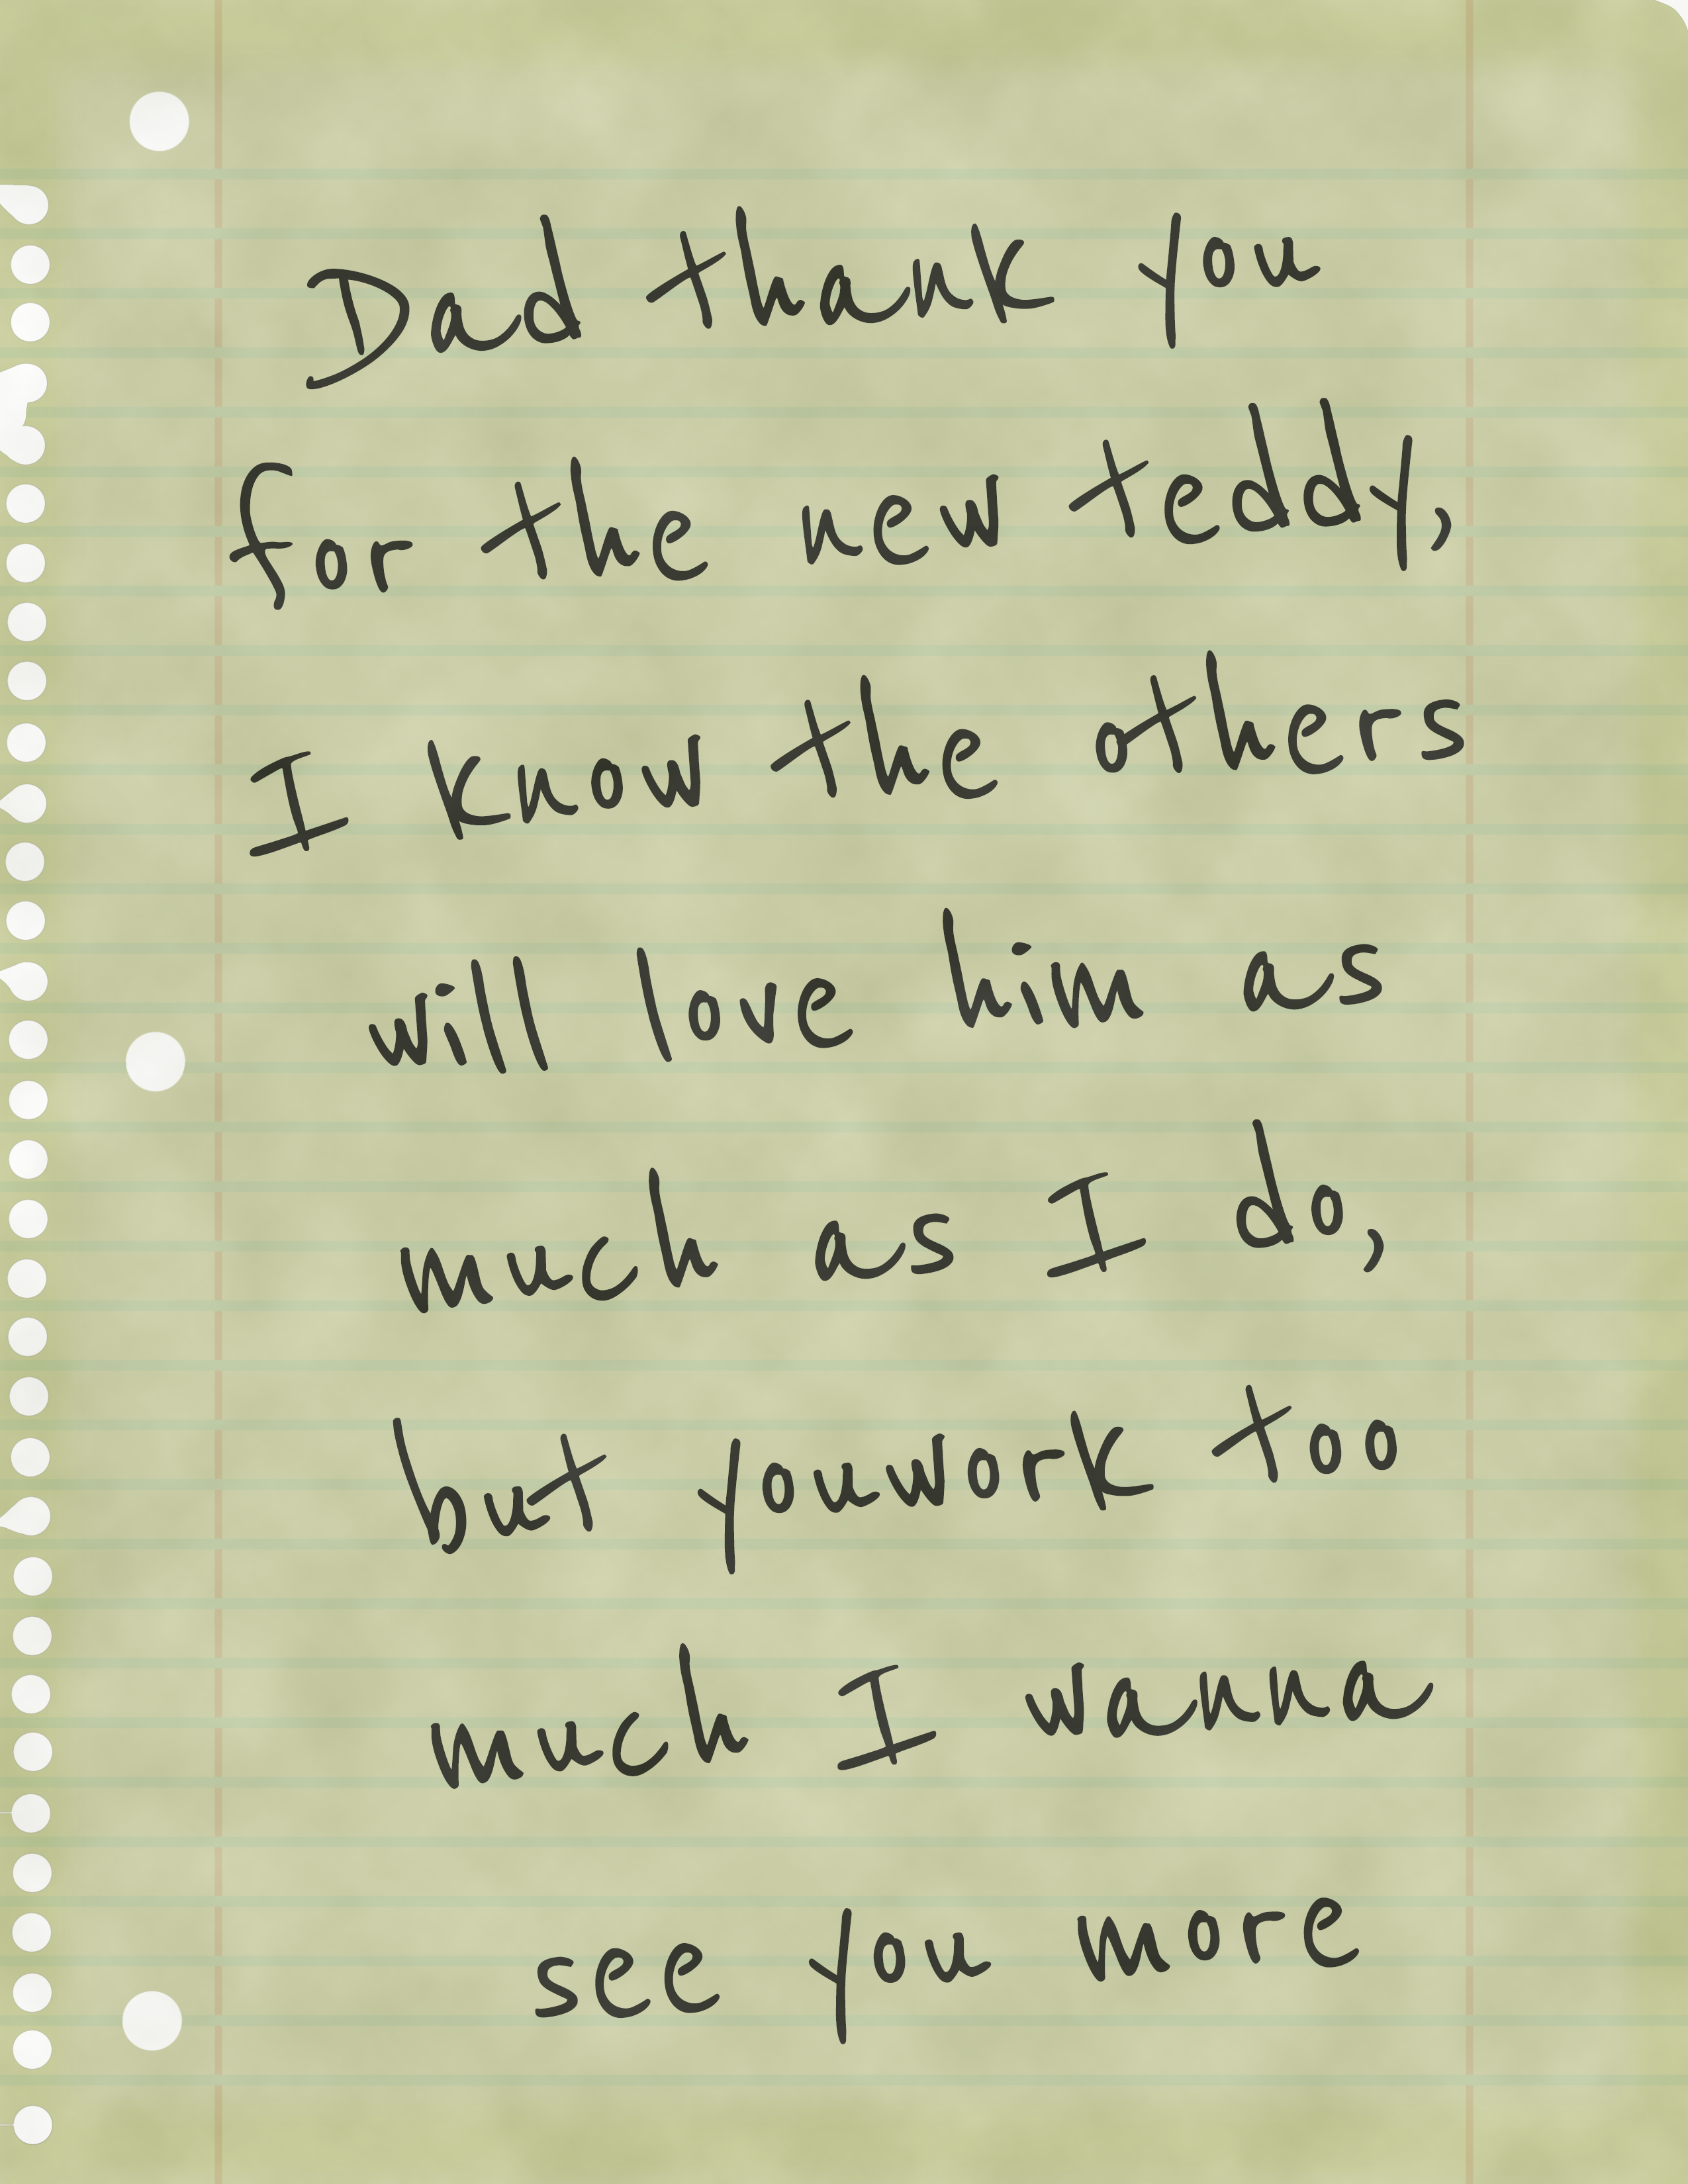 Dad thank you
for the new teddy,
I know the others
will love him as
much as I do,
but youwork too
much I wanna
see you more